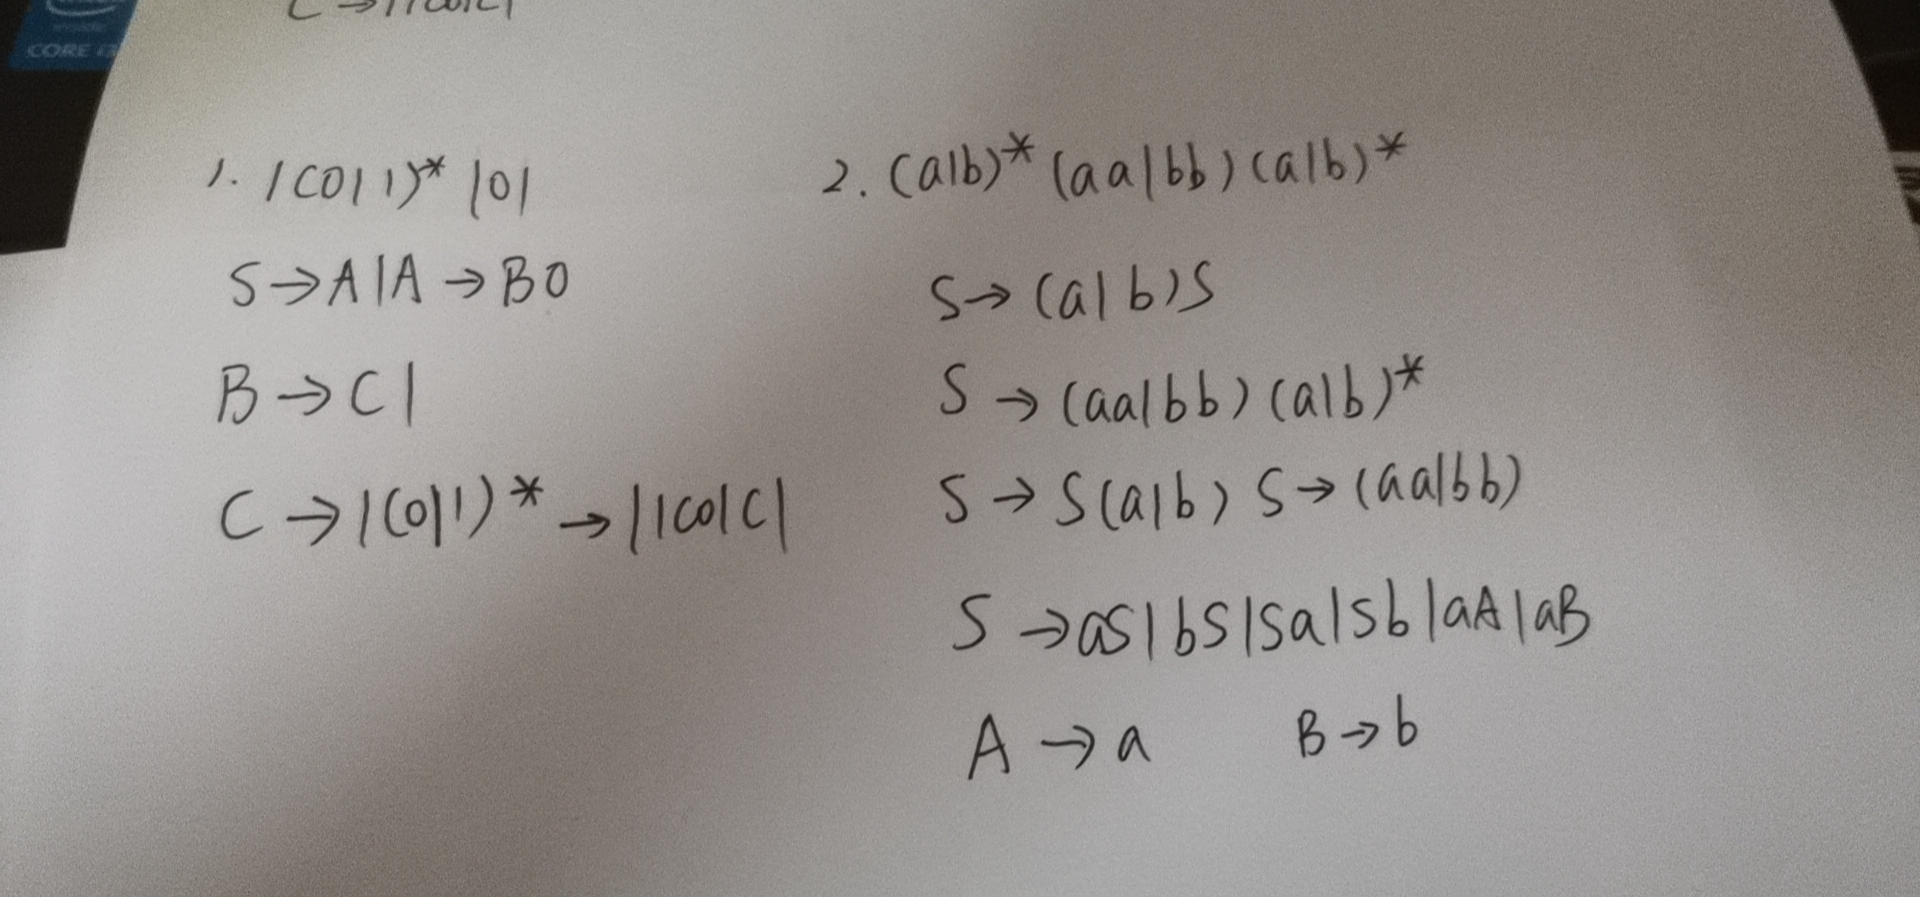 CORE i7
C → 1|C0|C1
1. 1(0|1)* 101
S → A1 A → B0
B → C1
C → 1(0|1)* → 1|C0|C1
2. (a|b)* (aa|bb) (a|b)*
S → (a|b)S
S → (aa|bb) (a|b)*
S → S(a|b) S → (aa|bb)
S → aS|bS|Sa|Sb|aA|aB
A → a B → b